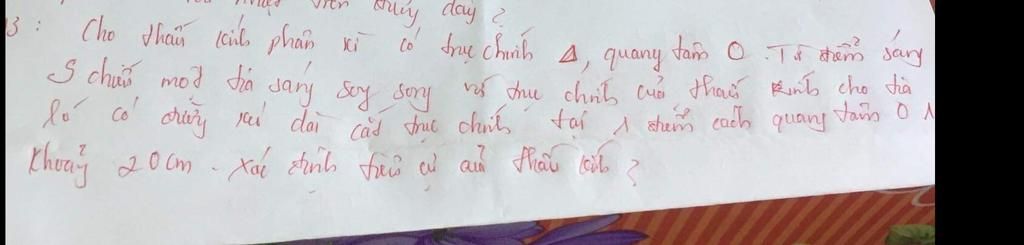 dây ?
3 : Cho thấu kính phân kì có trục chính Δ, quang tâm O. Từ điểm sáng
S chiếu một tia sáng song song với trục chính của thấu kính cho tia
ló có đường kéo dài cắt trục chính tại 1 điểm cách quang tâm O 1
khoảng 20cm. Xác định tiêu cự của thấu kính ?